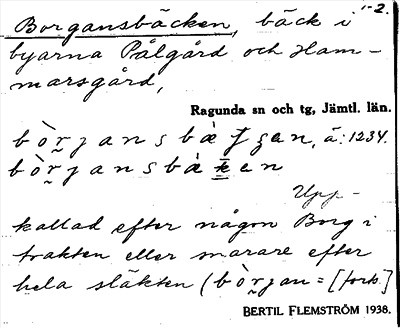 1-2.
Borgansbäcken, bäck i
byarna Pålgård och Ham-
marsgård,
Ragunda sn och tg, Jämtl. län.
bòr̰jansbæʃʒen, ä: 1234.
bòr̰jansbàken
Upp-
kallad efter någon Borg i
trakten eller snarare efter
hela släkten (bòr̰jan = [forts.]
BERTIL FLEMSTRÖM 1938.